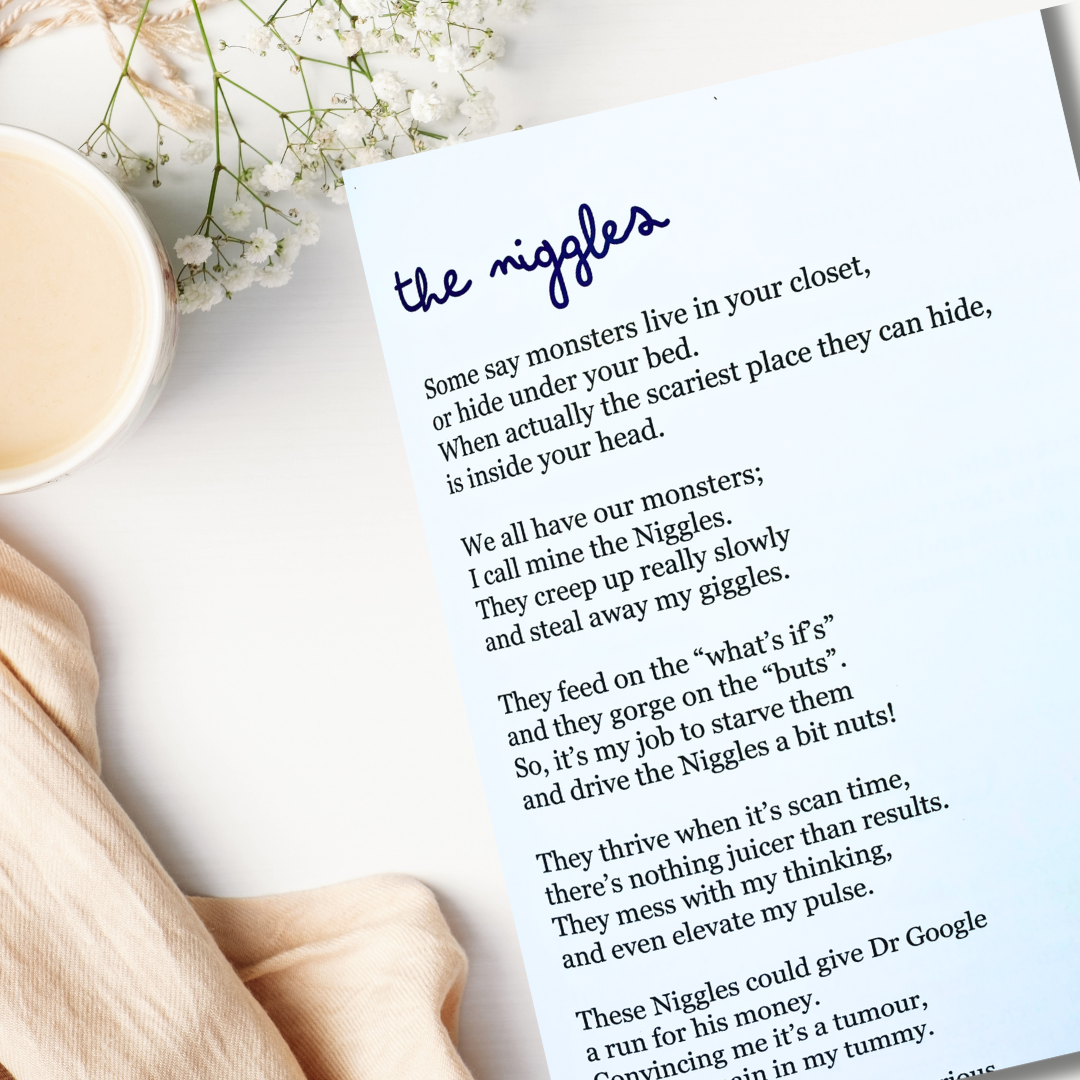 the niggles
Some say monsters live in your closet,
or hide under your bed.
When actually the scariest place they can hide,
is inside your head.
We all have our monsters;
I call mine the Niggles.
They creep up really slowly
and steal away my giggles.
They feed on the “what’s if’s”
and they gorge on the “buts”.
So, it’s my job to starve them
and drive the Niggles a bit nuts!
They thrive when it’s scan time,
there’s nothing juicer than results.
They mess with my thinking,
and even elevate my pulse.
These Niggles could give Dr Google
a run for his money.
Convincing me it’s a tumour,
in my tummy.